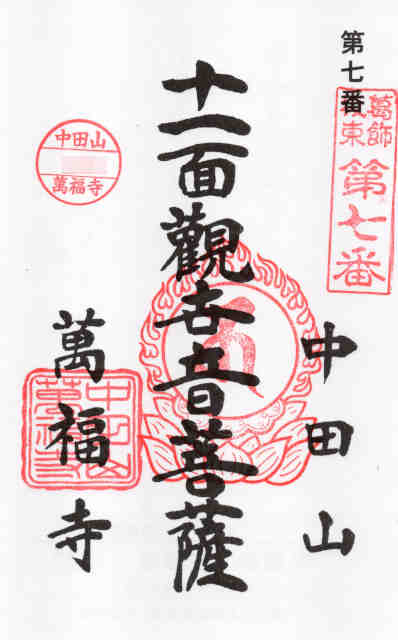 第七番
葛飾
東
第七番
中田山
十一面觀世音菩薩
中田山
萬福寺
萬福寺